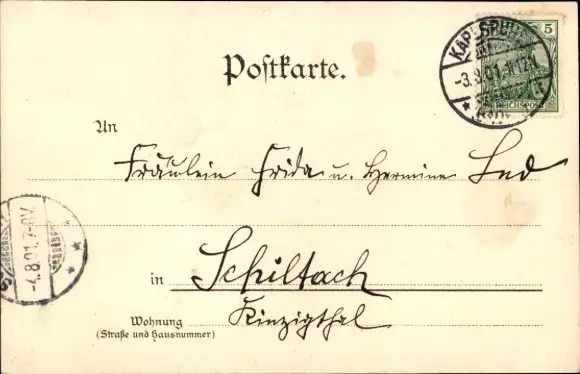 Postkarte.
KARLSRUHE
-3.8.01.11-12V.
5
REICHSPOST
An
Fräulein Frida u. Hermine
in Schiltach
Wohnung Kinzigthal
(Straße und Hausnummer)
-4.8.01.7-8V.